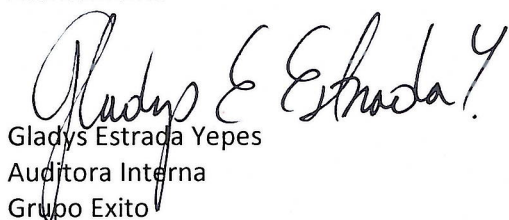 Gladys E Estrada Y
Gladys Estrada Yepes
Auditora Interna
Grupo Exito